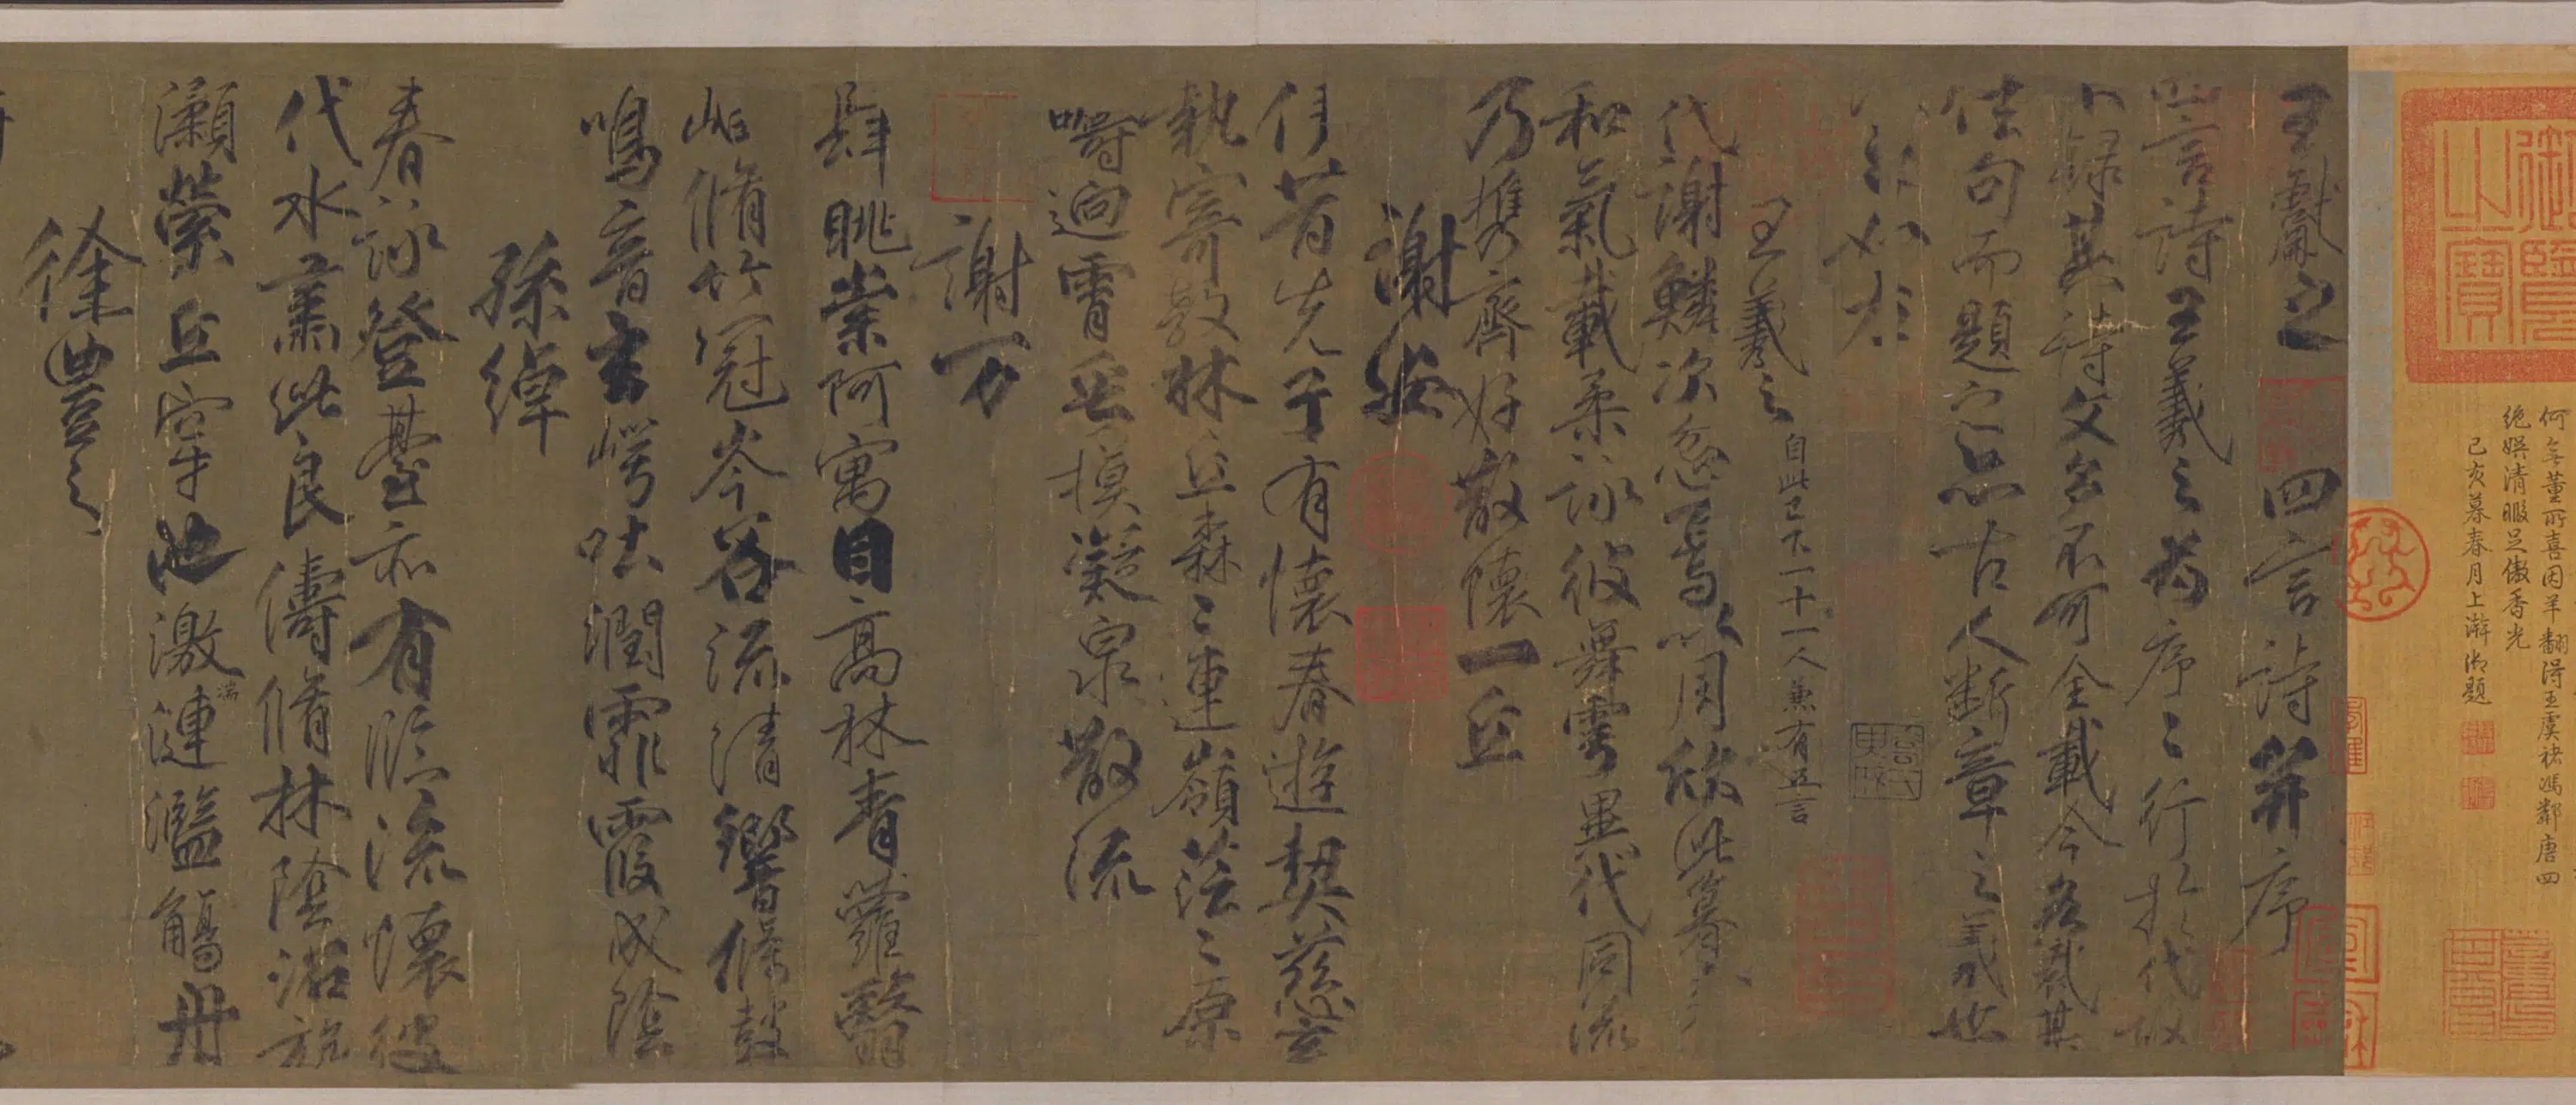 何與董所喜因羊翻得王虞褚馮鄰唐四
絕娛清暇足傲香光
己亥暮春月上澣御題
御覽之寶
王獻之 四言詩并序
四言詩王羲之為序序行於代故
不錄其詩文多不可全載今各裁其
佳句而題之亦古人斷章之義也
王羲之 自此已下一十一人兼有五言
代謝鱗次忽焉以周欣此暮春
和氣載柔詠彼舞雩異代同流
乃攜齊好散懷一丘
謝安
伊昔先子有懷春遊契茲言
執寄敖林丘森森連嶺茫茫原
疇迥霄垂模凝泉散流
謝万
肆眺崇阿寓目高林青蘿翳
岫脩竹冠岑谷流清響條鼓
鳴音玄崿吐潤霏霧成陰
孫綽
春詠登臺亦有臨流懷彼
代水肅此良儔脩林陰沼旋
瀨縈丘穿池激湍漣濫觴舟
徐豐之